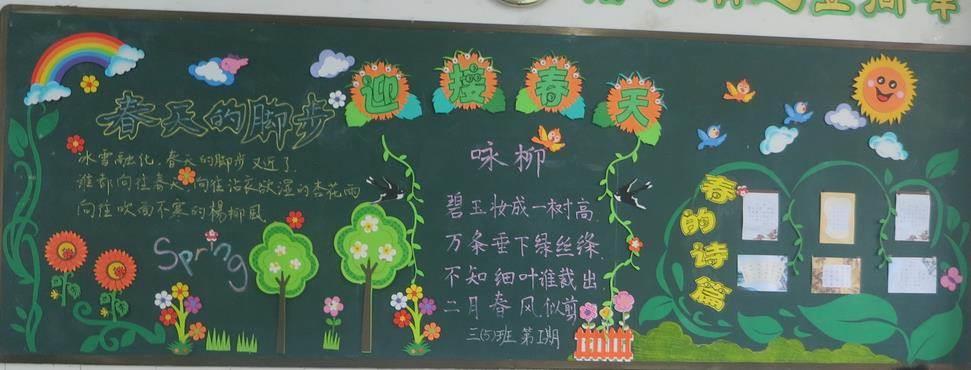 迎接春天
春天的脚步
冰雪融化,春天的脚步又近了
谁都向往春天,向往沾衣欲湿的杏花雨
向往吹面不寒的杨柳风
Spring
咏柳
碧玉妆成一树高
万条垂下绿丝绦
不知细叶谁裁出
二月春风似剪
三(5)班 第1期
春的诗篇